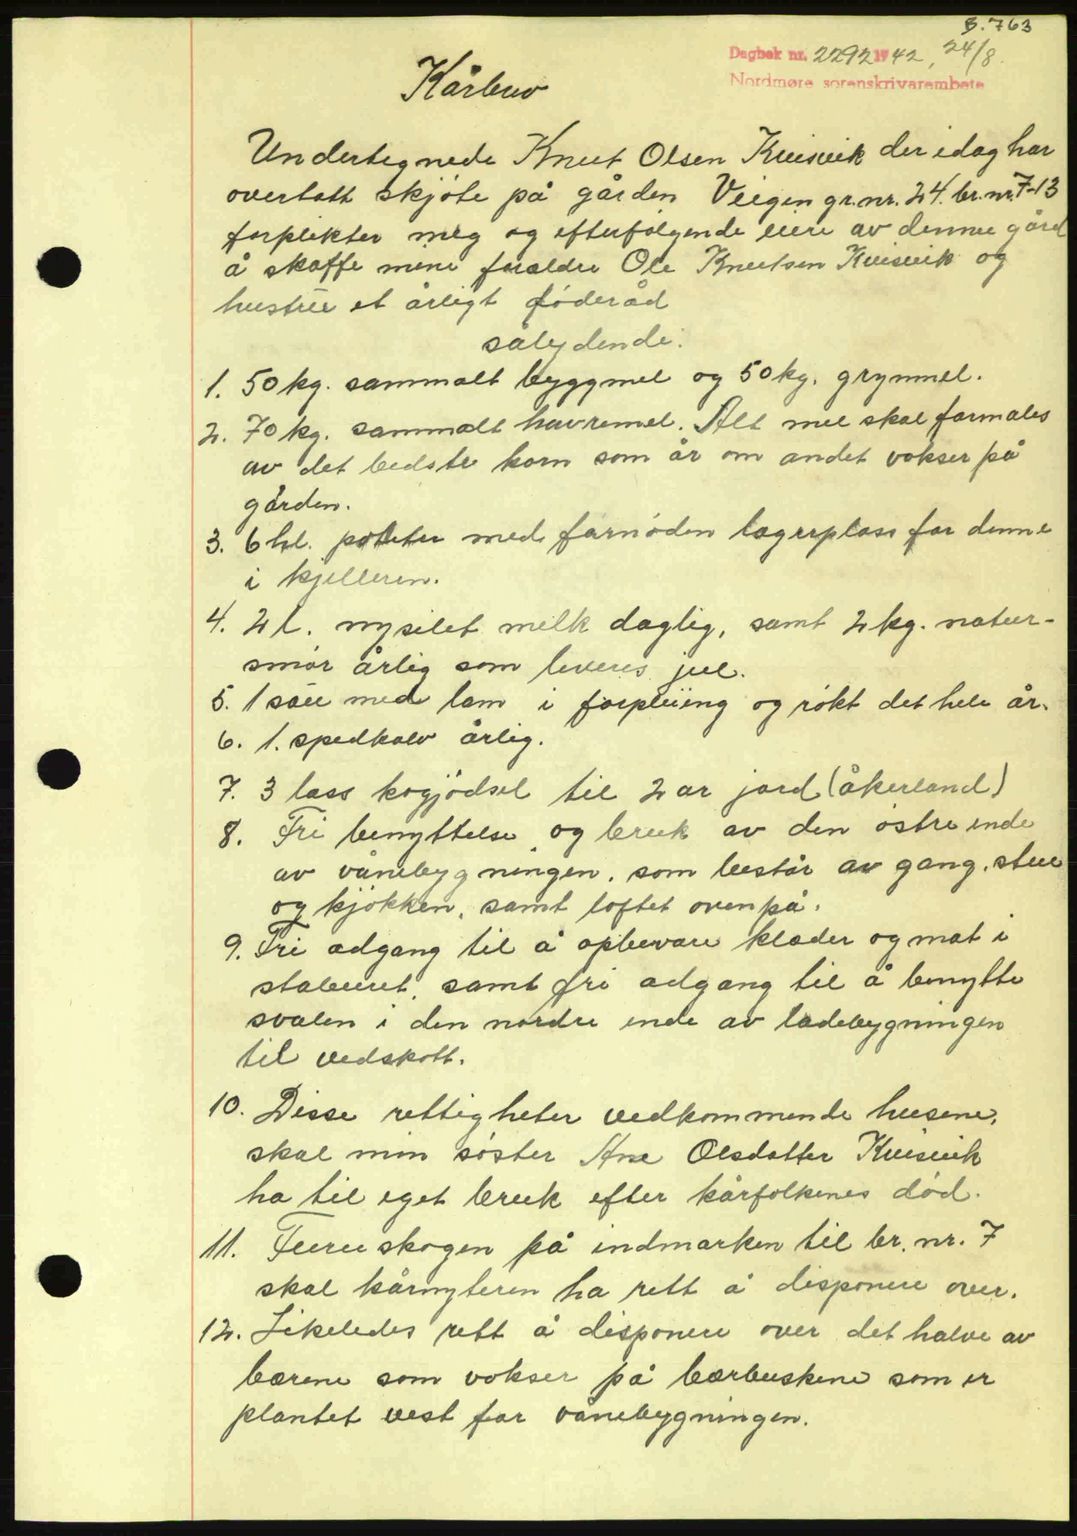 B. 763
Dagbok nr. 2292 1942, 24/8.
Nordmøre sorenskrivarembete
Kårbrev
Undertegnede Knut Olsen Kvisvik der idag har
overtatt skjöte på gården Veigen gr.nr. 24. br.nr. 7-13
forplikter meg og efterfölgende eiere av denne gård
å skaffe mine foreldre Ole Knutsen Kvisvik og
hustru et årligt föderåd
sålydende:
1. 50 kg. sammalt byggmel og 50 kg. grynmel.
2. 70 kg. sammalt havremel. Alt mel skal formales
av det bedste korn som år om andet vokser på
gården.
3. 6 hl. poteter med fornöden lagerplass for denne
i kjelleren.
4. 2 l. nysilet melk daglig, samt 2 kg. natur-
smör årlig som leveres jul.
5. 1 sau med lam i forpleiing og rökt det hele år.
6. 1. spedkalv årlig.
7. 3 lass kogjödsel til 2 ar jord (åkerland)
8. Fri benyttelse og bruk av den östre ende
av vånebygningen, som består av gang, stue
og kjökken, samt loftet ovenpå.
9. Fri adgang til å opbevare klæder og mat i
stabburet, samt fri adgang til å benytte
svalen i den nordre ende av ladebygningen
til vedskott.
10. Disse rettigheter vedkommende husene,
skal min söster Ane Olsdatter Kvisvik
ha til eget bruk efter kårfolkenes död.
11. Furuskogen på indmarken til br. nr. 7
skal kårnyteren ha rett å disponere over.
12. Likeledes rett å disponere over det halve av
bærene som vokser på bærbuskene som er
plantet vest for vånebygningen.